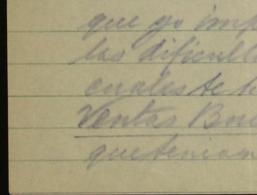 que yo imp
las dificult
cuales te h
Ventas Bue
que teniam